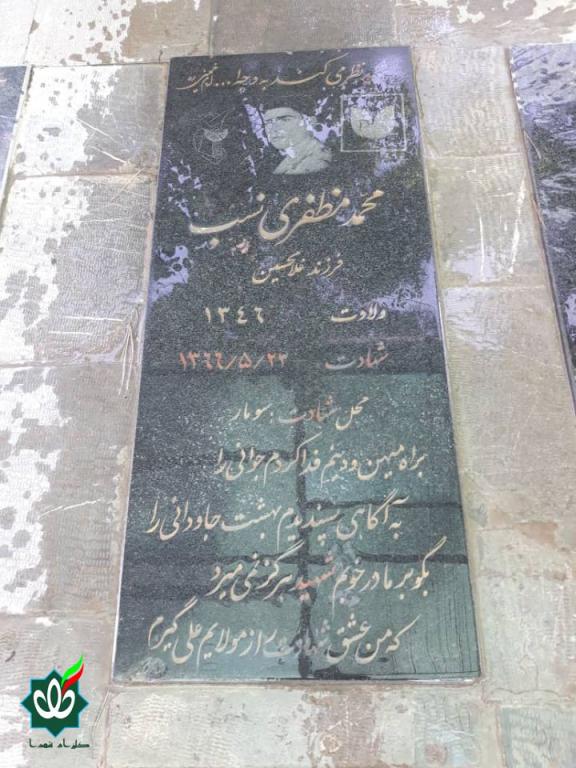 نظری کند به وجه ا...
محمد مظفری نسب
فرزند غلامحسین
ولادت ۱۳۴۶
شهادت ۱۳۶۶/۵/۲۳
محل شهادت : سومار
براه میهن و دینم فدا کردم جوانی را
به آگاهی پسندیدم بهشت جاودانی را
بگو بر مادر خوبم شهید هرگز نمی میرد
که من عشق شهادت را از مولایم علی گیرم
گلزار شهدا